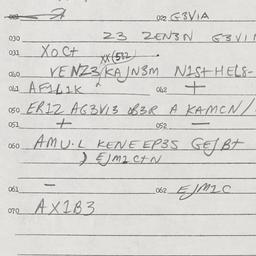 022 G3V1A
030 Z3 ZEN3N G3V1
031 XOC+
XX(582
040 VENZ3/KAJN3M N1S+HELS-
061 AF1L1K 062 +
050 ER1Z AG3V13 A KAMCN/
051 + 052 =
060 AMU·L KENE EP3S GEJB+
) EJM2C+N
061 - 062 EJM2C
070 AX1B3